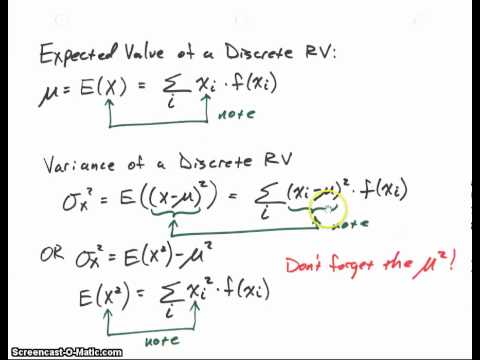 Expected Value of a Discrete RV:
μ = E(X) = Σ_i x_i · f(x_i)
note
Variance of a Discrete RV
σ_x² = E((x-μ)²) = Σ_i (x_i-μ)² · f(x_i)
note
OR σ_x² = E(X²) - μ²
Don't forget the μ²!
E(X²) = Σ_i x_i² · f(x_i)
note
Screencast-O-Matic.com